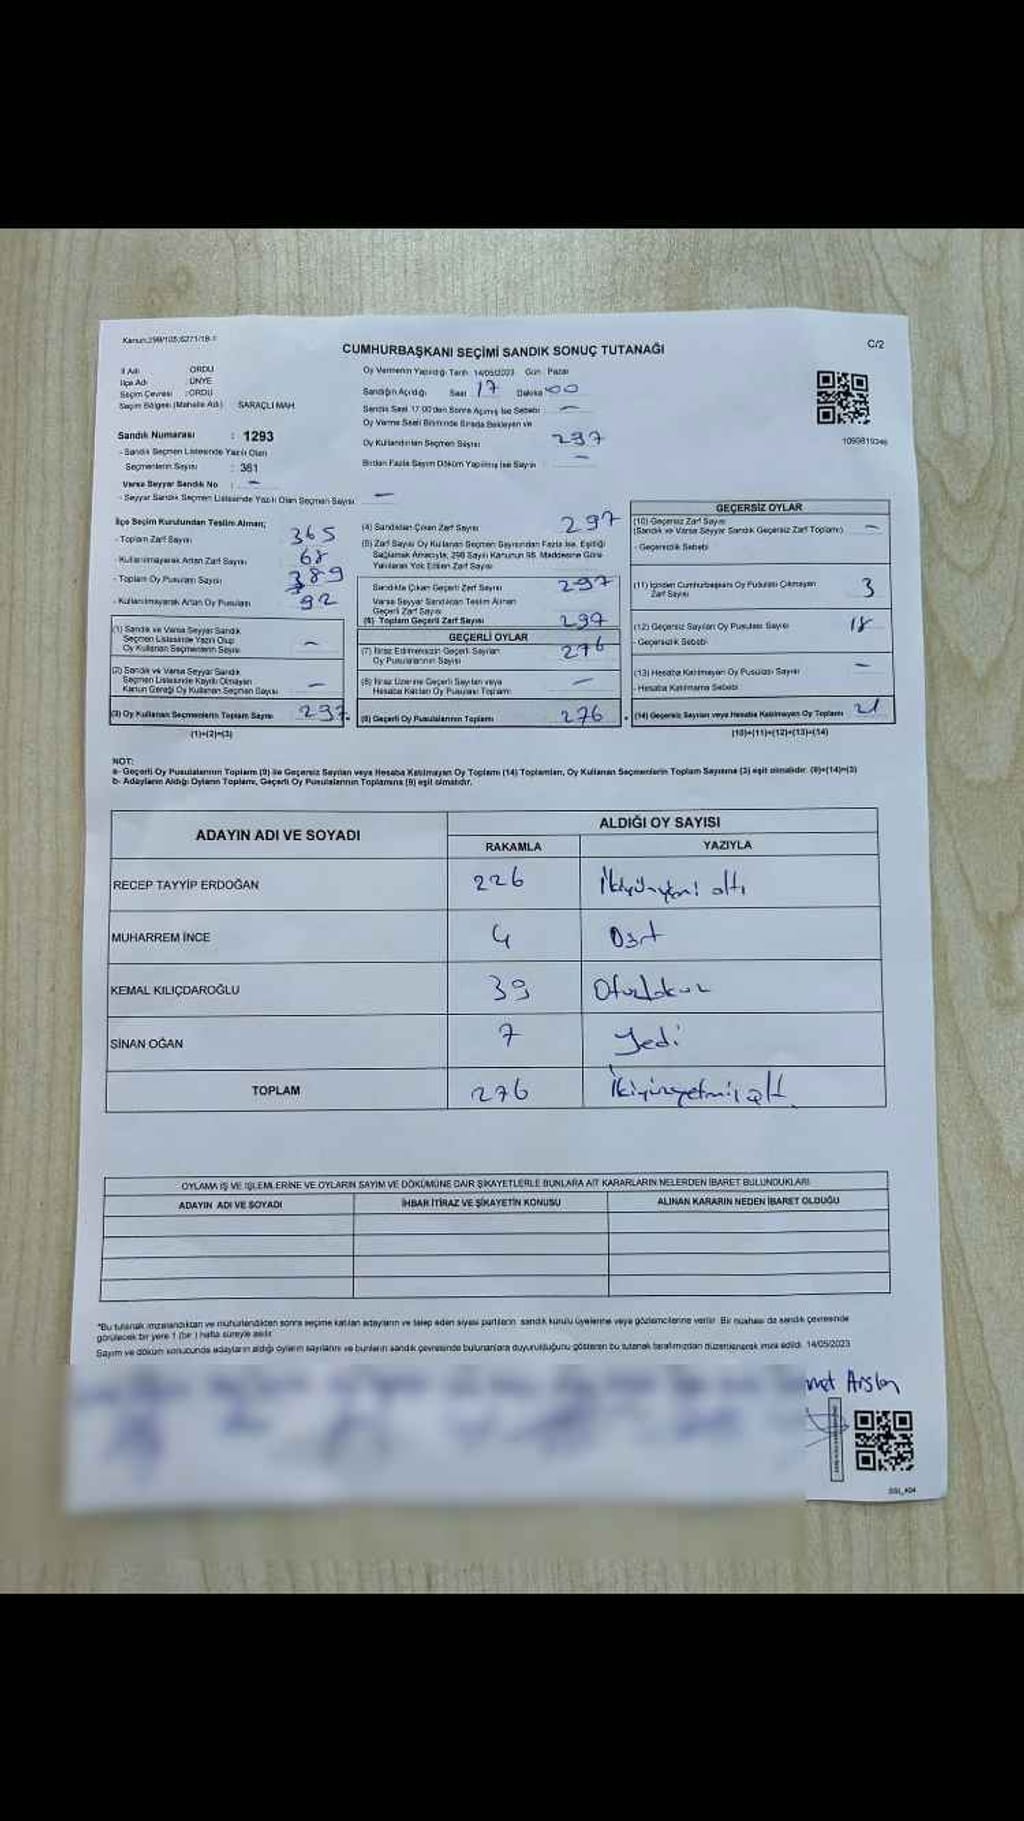 Kanun:298/105;6271/18-1
C/2
CUMHURBAŞKANI SEÇİMİ SANDIK SONUÇ TUTANAĞI
İl Adı : ORDU
İlçe Adı : ÜNYE
Seçim Çevresi : ORDU
Seçim Bölgesi (Mahalle Adı) SARAÇLI MAH.
Sandık Numarası : 1293
- Sandık Seçmen Listesinde Yazılı Olan
Seçmenlerin Sayısı : 361
Varsa Seyyar Sandık No : –
- Seyyar Sandık Seçmen Listesinde Yazılı Olan Seçmen Sayısı –
Oy Vermenin Yapıldığı Tarih 14/05/2023 Gün : Pazar
Sandığın Açıldığı Saat 17 Dakika 00
Sandık Saat 17:00'den Sonra Açılmış İse Sebebi –
Oy Verme Saati Bitiminde Sırada Bekleyen ve
Oy Kullandırılan Seçmen Sayısı 297
Birden Fazla Sayım Döküm Yapılmış İse Sayısı –
1099819346
İlçe Seçim Kurulundan Teslim Alınan;
- Toplam Zarf Sayısı 365
- Kullanılmayarak Artan Zarf Sayısı 68
- Toplam Oy Pusulası Sayısı 389
- Kullanılmayarak Artan Oy Pusulası 92
(1) Sandık ve Varsa Seyyar Sandık
Seçmen Listesinde Yazılı Olup
Oy Kullanan Seçmenlerin Sayısı –
(2) Sandık ve Varsa Seyyar Sandık
Seçmen Listesinde Kayıtlı Olmayan
Kanun Gereği Oy Kullanan Seçmen Sayısı –
(3) Oy Kullanan Seçmenlerin Toplam Sayısı 297
(1)+(2)=(3)
(4) Sandıktan Çıkan Zarf Sayısı 297
(5) Zarf Sayısı Oy Kullanan Seçmen Sayısından Fazla İse, Eşitliği
Sağlamak Amacıyla, 298 Sayılı Kanunun 98. Maddesine Göre
Yakılarak Yok Edilen Zarf Sayısı
Sandıkta Çıkan Geçerli Zarf Sayısı 297
Varsa Seyyar Sandıktan Teslim Alınan
Geçerli Zarf Sayısı
(6) Toplam Geçerli Zarf Sayısı 297
GEÇERLİ OYLAR
(7) İtiraz Edilmeksizin Geçerli Sayılan
Oy Pusulalarının Sayısı 276
(8) İtiraz Üzerine Geçerli Sayılan veya
Hesaba Katılan Oy Pusulası Toplamı –
(9) Geçerli Oy Pusulalarının Toplamı 276
GEÇERSİZ OYLAR
(10) Geçersiz Zarf Sayısı
(Sandık ve Varsa Seyyar Sandık Geçersiz Zarf Toplamı) –
- Geçersizlik Sebebi
(11) İçinden Cumhurbaşkanı Oy Pusulası Çıkmayan
Zarf Sayısı 3
(12) Geçersiz Sayılan Oy Pusulası Sayısı 18
- Geçersizlik Sebebi
(13) Hesaba Katılmayan Oy Pusulası Sayısı –
- Hesaba Katılmama Sebebi
(14) Geçersiz Sayılan veya Hesaba Katılmayan Oy Toplamı 21
(10)+(11)+(12)+(13)=(14)
NOT:
a- Geçerli Oy Pusulalarının Toplamı (9) ile Geçersiz Sayılan veya Hesaba Katılmayan Oy Toplamı (14) Toplamları, Oy Kullanan Seçmenlerin Toplam Sayısına (3) eşit olmalıdır. (9)+(14)=(3)
b- Adayların Aldığı Oyların Toplamı, Geçerli Oy Pusulalarının Toplamına (9) eşit olmalıdır.
ADAYIN ADI VE SOYADI
ALDIĞI OY SAYISI
RAKAMLA YAZIYLA
RECEP TAYYİP ERDOĞAN 226 İkiyüzyirmi altı
MUHARREM İNCE 4 Dört
KEMAL KILIÇDAROĞLU 39 Otuzdokuz
SİNAN OĞAN 7 Yedi
TOPLAM 276 İkiyüzyetmiş altı
OYLAMA İŞ VE İŞLEMLERİNE VE OYLARIN SAYIM VE DÖKÜMÜNE DAİR ŞİKAYETLERLE BUNLARA AİT KARARLARIN NELERDEN İBARET BULUNDUKLARI
ADAYIN ADI VE SOYADI İHBAR İTİRAZ VE ŞİKAYETİN KONUSU ALINAN KARARIN NEDEN İBARET OLDUĞU
*Bu tutanak imzalandıktan ve mühürlendikten sonra seçime katılan adayların ve talep eden siyasi partilerin sandık kurulu üyelerine veya gözlemcilerine verilir. Bir nüshası da sandık çevresinde
görülecek bir yere 1 (bir ) hafta süreyle asılır.
Sayım ve döküm sonucunda adayların aldığı oyların sayılarını ve bunların sandık çevresinde bulunanlara duyurulduğunu gösteren bu tutanak tarafımızdan düzenlenerek imza edildi. 14/05/2023
met Arslan